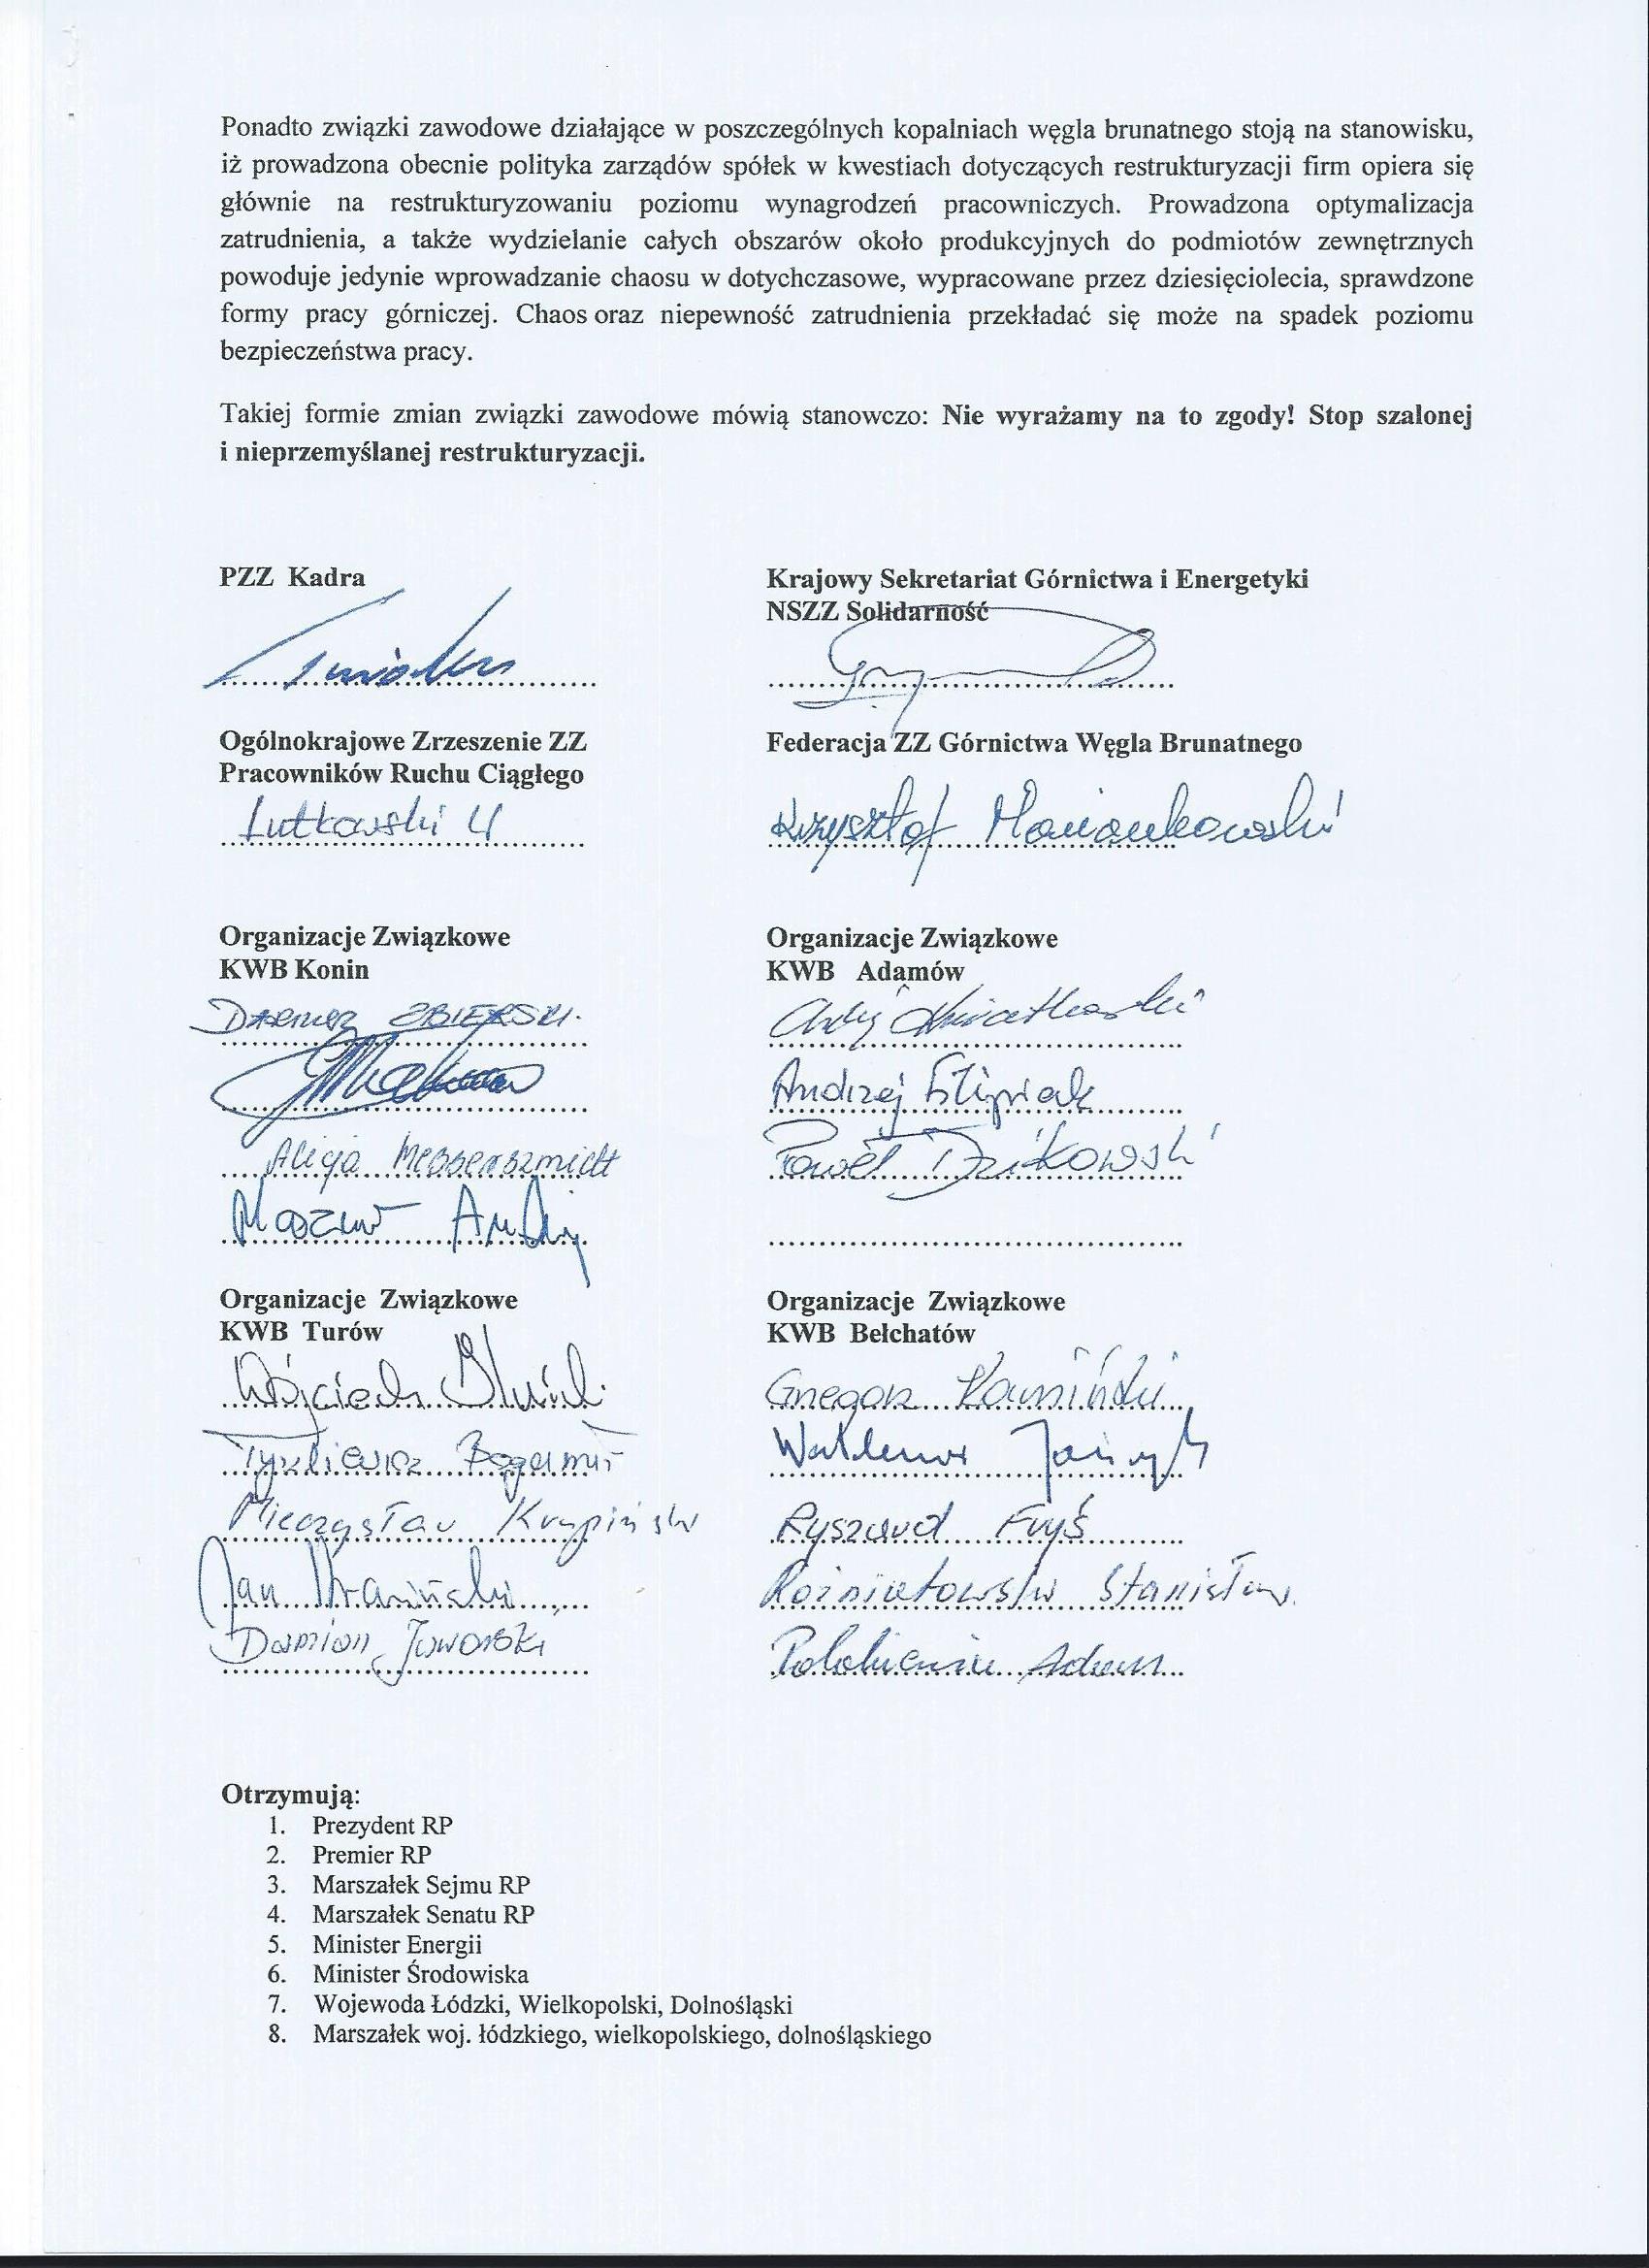 Ponadto związki zawodowe działające w poszczególnych kopalniach węgla brunatnego stoją na stanowisku,
iż prowadzona obecnie polityka zarządów spółek w kwestiach dotyczących restrukturyzacji firm opiera się
głównie na restrukturyzowaniu poziomu wynagrodzeń pracowniczych. Prowadzona optymalizacja
zatrudnienia, a także wydzielanie całych obszarów około produkcyjnych do podmiotów zewnętrznych
powoduje jedynie wprowadzanie chaosu w dotychczasowe, wypracowane przez dziesięciolecia, sprawdzone
formy pracy górniczej. Chaos oraz niepewność zatrudnienia przekładać się może na spadek poziomu
bezpieczeństwa pracy.
Takiej formie zmian związki zawodowe mówią stanowczo: Nie wyrażamy na to zgody! Stop szalonej
i nieprzemyślanej restrukturyzacji.
PZZ Kadra
Krajowy Sekretariat Górnictwa i Energetyki
NSZZ Solidarność
Ogólnokrajowe Zrzeszenie ZZ
Pracowników Ruchu Ciągłego
Lutkowski
Federacja ZZ Górnictwa Węgla Brunatnego
Krzysztof
Organizacje Związkowe
KWB Konin
Dariusz ZBIERSKI.
Alicja Messerszmidt
Mazur Andrzej
Organizacje Związkowe
KWB Adamów
Andrzej
Paweł
Organizacje Związkowe
KWB Turów
Wojciech
Tyszkiewicz Bogumił
Mieczysław
Jan
Damian Jaworski
Organizacje Związkowe
KWB Bełchatów
Grzegorz Kamiński
Waldemar
Ryszard Fryś
Rożniatowski Stanisław
Adam
Otrzymują:
1. Prezydent RP
2. Premier RP
3. Marszałek Sejmu RP
4. Marszałek Senatu RP
5. Minister Energii
6. Minister Środowiska
7. Wojewoda Łódzki, Wielkopolski, Dolnośląski
8. Marszałek woj. łódzkiego, wielkopolskiego, dolnośląskiego